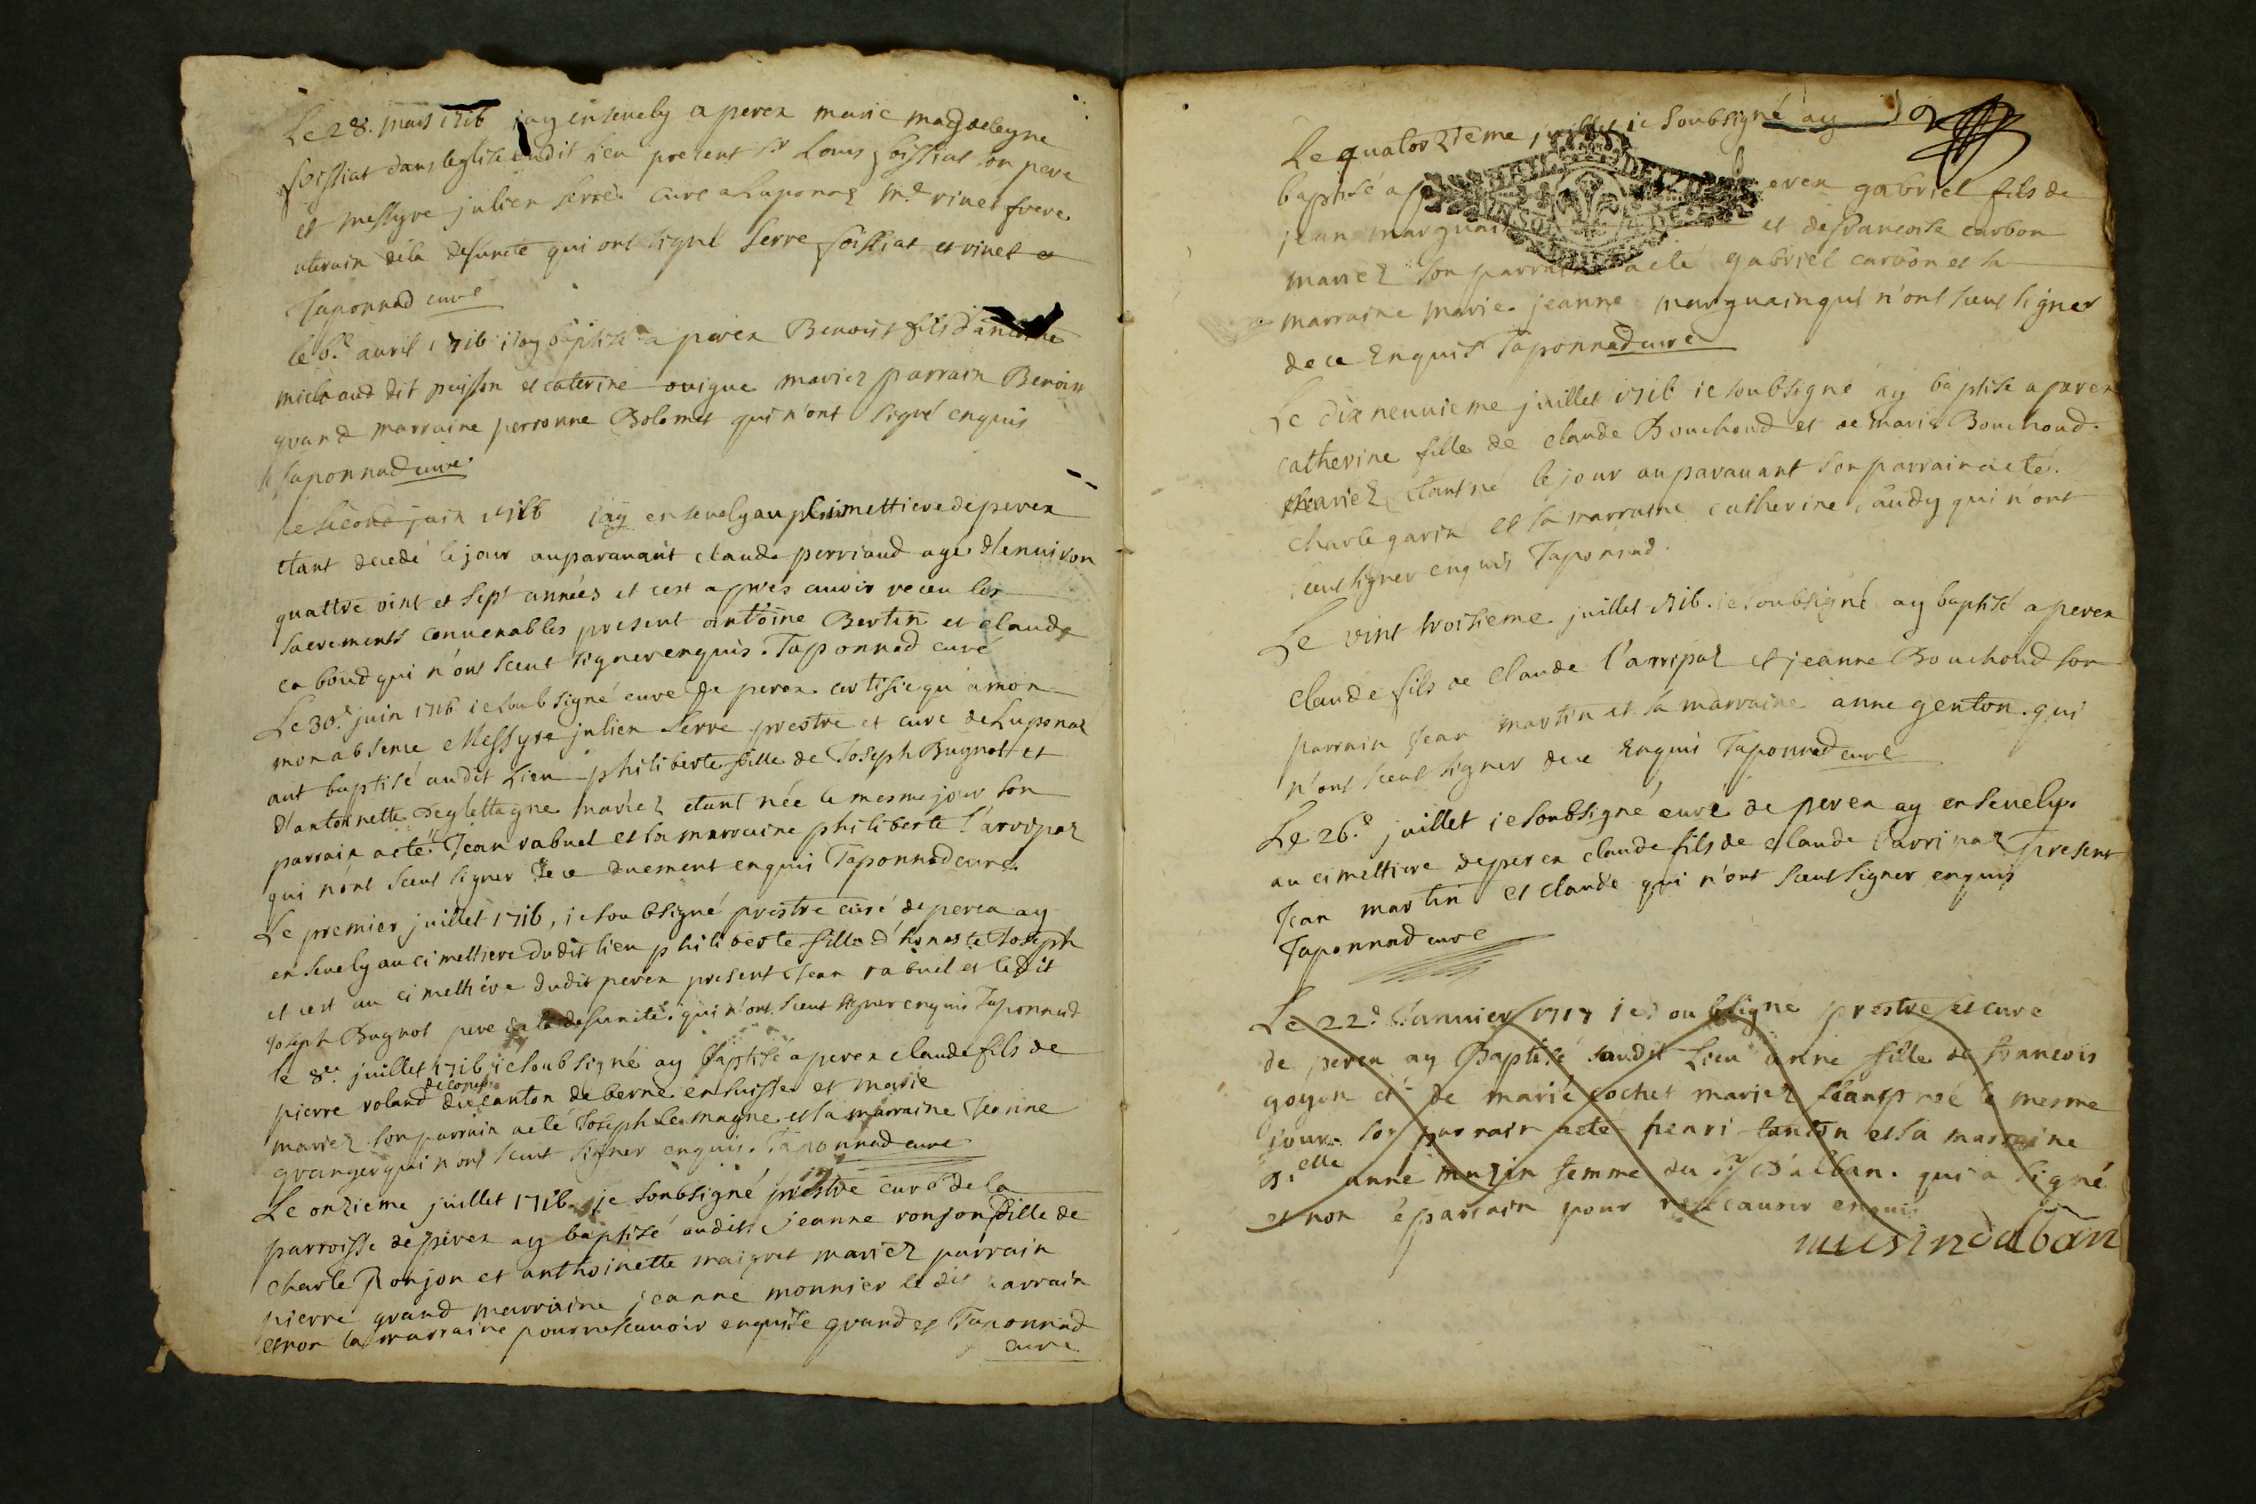 Le 28. mars 1716 jay ensevely a peren marie magdeleyne
soissiat dans leglise dudit lieu present sr Louis soissiat son pere
et messyre julien serre cure a Luponnaz Mr vinet frere
uterain de la defuncte qui ont signé serre soissiat et vinet et
Taponnad curé
le 6e avril 1716 iay baptisé a peren Benoist fils d'antoine
michaud dit puisson et caterine ouigue mariez parrain Benoin
grand marraine perronne Bolomet qui n'ont signé enquis
Taponnad curé
le second juin 1716 iay ensevely au cimettiere de peren
étant decedé le jour auparauant claude perriaud agé d'enuiron
quattre vint et sept années et cest apres auoir receu les
sacrements conuenables present antoine Bertin et claude
caboud qui n'ont sceut signer enquis. Taponnad curé
Le 30e juin 1716 ie soubsigné curé de peren certifie qu'a mon
mon absence Messyre julien serre prestre et cure de Luponaz
aut baptisé audit Lieu philiberte fille de Joseph Bugnot et
d'antonnette Deglettagne mariez étant née le mesme jour son
parrain a eté Jean rabuel et la marraine philiberte l'arripaz
qui n'ont sceut signer de ce duement enquis Taponnad curé
Le premier juillet 1716, ie soubsigné prestre curé de peren ay
ensevely au cimettiere dudit lieu philiberte fille d'honeste Joseph
et cest au cimettiere dudit peren present Jean rabuel et ledit
Joseph Bugnot pere de la defuncte qui n'ont sceut signer enquis Taponnad
le 8e juillet 1716 ie soubsigné ay baptisé a peren claude fils de
pierre roland du canton de berne en suisse et marie
mariez son parrain a eté Joseph Lemagne et la marraine Jeanne
granger qui n'ont sceut signer enquis. Taponnad curé
Le onzieme juillet 1716 je soubsigné prestre curé de la
parroisse de peren ay baptisé audit jeanne ronjon fille de
charle Ronjon et anthoinette maigret mariez parrain
pierre grand marraine jeanne monnier le dit parrain
et non la marraine pour ne scauoir enquise grand et Taponnad
curé
Le quatorzieme juillet ie soubsigné ay
baptisé a peren gabriel fils de
jean marguain et de francoise carbon
mariez son parrain a eté gabriel carbon et la
marraine marie jeanne marguain qui n'ont sceut signer
de ce Enquis Taponnad curé
Le dix neuuieme juillet 1716 ie soubsigné ay baptisé a peren
catherine fille de claude Bouchoud et de marie Bouchoud
mariez étant né le jour auparauant son parrain a eté
charle garin et sa marraine catherine caudy qui n'ont
sceut signer enquis Taponnad.
Le vint troisieme juillet 1716. ie soubsigné ay baptisé a peren
claude fils de claude l'arripaz et jeanne Bouchoud son
parrain Jean martin et sa marraine anne genton. qui
n'ont sceut signer de ce Enquis Taponnad curé
Le 26e juillet ie soubsigné curé de peren ay ensevely
au cimettiere de peren claude fils de claude Larripaz present
Jean martin et claude qui n'ont sceut signer enquis
Taponnad curé
Le 22e Januier 1717 ie soubsigné prestre et cure
de peren ay Baptisé audit Lieu anne fille de francois
goyon et de marie cochet mariez étant née le mesme
jour son parrain a eté henri tanton et sa marraine
D.elle anne muzin femme du Sr D'alban. qui a signé
et non le parrain pour ne scauoir enquis
musin dalban